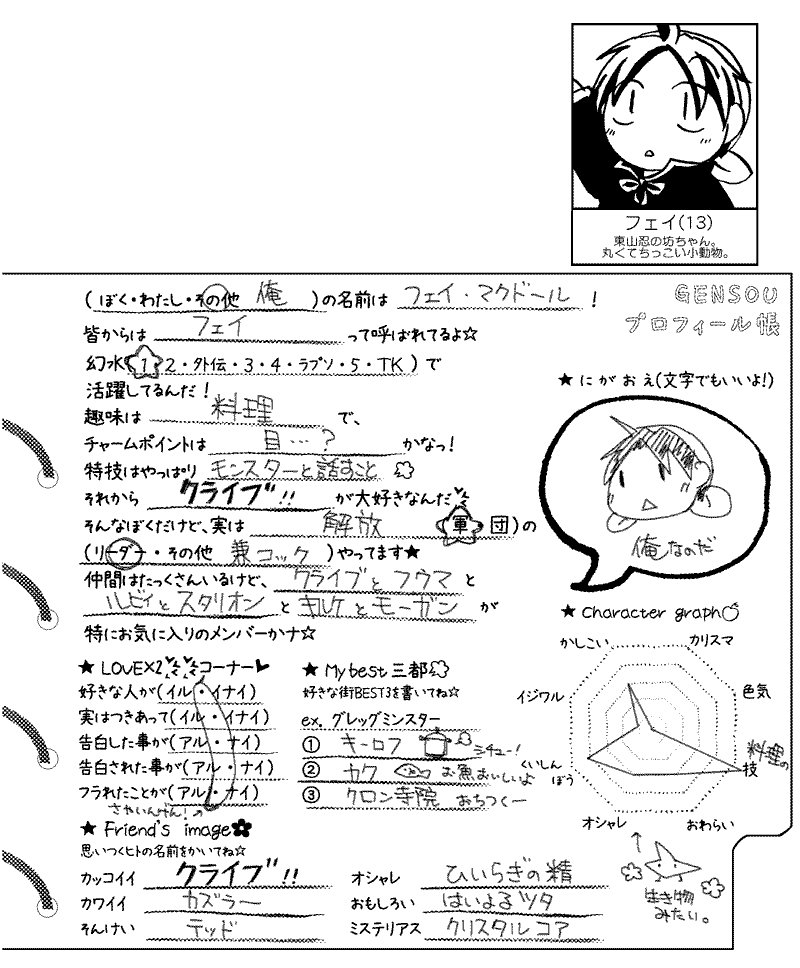 フェイ(13)
東山忍の坊ちゃん。
丸くてちっこい小動物。
GENSOU
プロフィール帳
(ぼく・わたし・その他 俺 )の名前は フェイ・マクドール !
皆からは フェイ って呼ばれてるよ☆
幻水(1・2・外伝・3・4・ラプソ・5・TK)で
活躍してるんだ!
趣味は 料理 で、
チャームポイントは 目…? かなっ!
特技はやっぱり モンスターと話すこと
それから クライブ!! が大好きなんだ
そんなぼくだけど、実は 解放 (軍・団)の
(リーダー・その他 兼コック )やってます★
仲間はたっくさんいるけど、 クライブ と フウマ と
ルビィ と スタリオン と キルケ と モーガン が
特にお気に入りのメンバーかナ☆
★ にがおえ(文字でもいいよ!)
俺なのだ
★ LOVE×2コーナー♥
好きな人が(イル・イナイ)
実はつきあって(イル・イナイ)
告白した事が(アル・ナイ)
告白された事が(アル・ナイ)
フラれたことが(アル・ナイ)
さやいんげん!
★ My best 三都
好きな街BEST3を書いてね☆
ex. グレッグミンスター
① キーロフ シチュー!
② カク お魚おいしいよ
③ クロン寺院 おちつくー
★ Character graph
かしこい
カリスマ
色気
料理の
技
おわらい
オシャレ
くいしん
ぼう
イジワル
生き物
みたい。
★ Friend's image
思いつくヒトの名前をかいてね☆
カッコイイ クライブ!!
カワイイ カズラー
そんけい テッド
オシャレ ひいらぎの精
おもしろい はいよるツタ
ミステリアス クリスタルコア